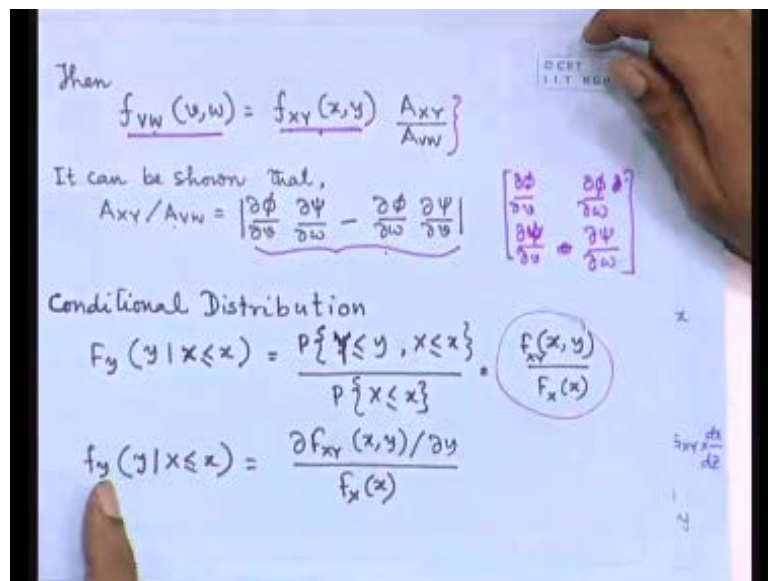 Then
f_VW (v,w) = f_XY (x,y) A_XY / A_VW }
It can be shown that,
A_XY / A_VW = | ∂φ/∂v ∂ψ/∂w − ∂φ/∂w ∂ψ/∂v | [ ∂φ/∂v ∂φ/∂w ∂ψ/∂v ∂ψ/∂w ]
Conditional Distribution
x
F_y (y | X ≤ x) = P{ Y ≤ y , X ≤ x} / P{ X ≤ x} = F_XY(x,y) / F_X(x)
f_y (y | X ≤ x) = ∂F_XY (x,y) / ∂y / F_X (x)
dx / dz
y